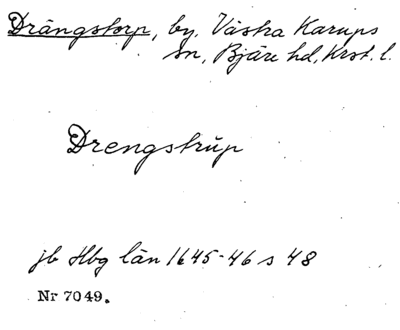 Drängstorp, by. Västra Karups
sn, Bjäre hd, Krst. l.
Drengstrŭp
jb Hbg län 1645-46 s 48
Nr 7049.